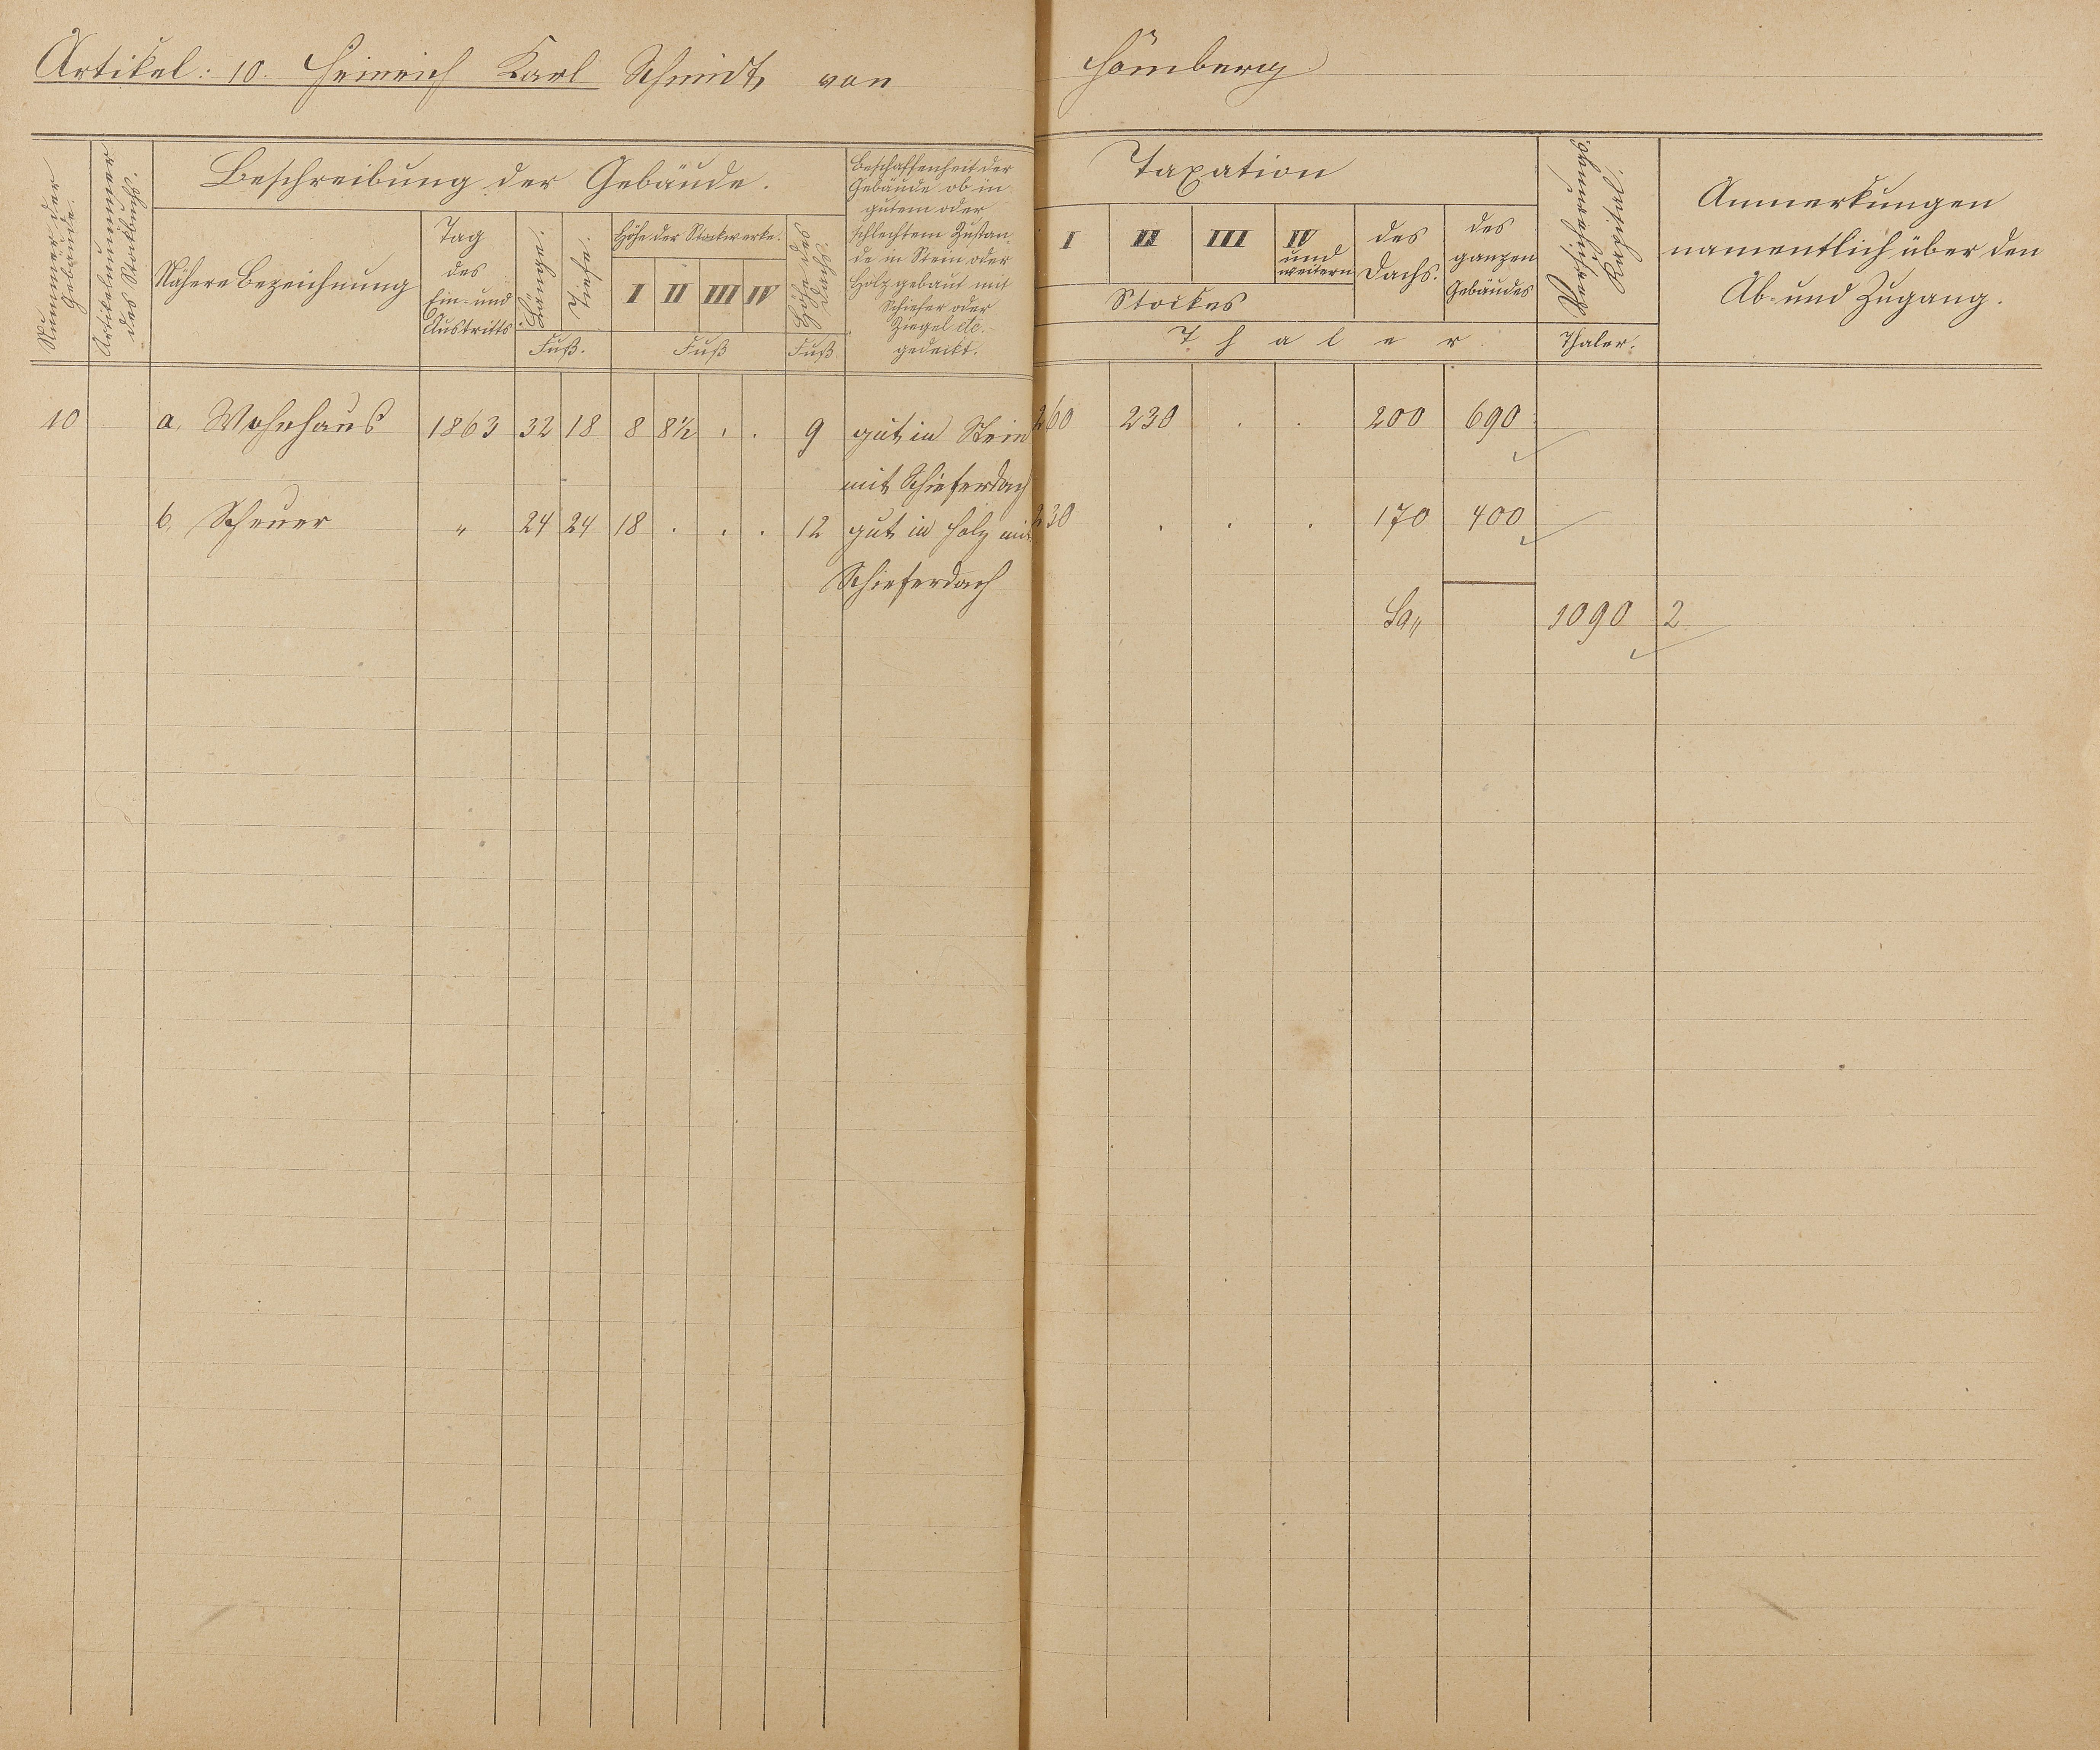 Artikel: 10. Heinrich Karl Schmidt von Hömberg
Nummer der Gebäude.
Artikelnummer des Stockbuchs.
Beschreibung der Gebäude.
Nähere Bezeichnung
Tag des Ein- und Austritts
Länge.
Tiefe.
Fuß.
Höhe der Stockwerke.
I II III IV
Fuß
Höhe des Dachs.
Fuß
Beschaffenheit der
Gebäude ob in
gutem oder
schlechtem Zustan-
de in Stein oder
Holz gebaut mit
Schiefer oder
Ziegel etc.
gedeckt.
Taxation
I II III IV und weitern
Stockes
des Dachs.
des ganzen Gebäudes
Thaler.
Versicherungs Kapital.
Thaler.
Anmerkungen
namentlich über den
Ab- und Zugang.
10 a. Wohnhaus 1863 32 18 8 8½ . . 9 gut in Stein 260 230 . . 200 690
mit Schieferdach
b. Scheuer " 24 24 18 . . . 12 gut in Holz mit 230 . . . 170 400
Schieferdach
Sa,, 1090 2